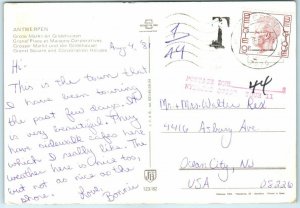 ANTWERPEN
Grote Markt en Gildehuizen
Grand'Place et Maisons Corporatives
Grosser Markt und die Gildenhäuser
Grand Square and Corporation Houses
Aug 9, 81
Hi-
This is the town that
I have been touring
the past few days. It
is very beautiful. They
have sidewalk cafes here
which I really like. The
weather here is nice too,
but not as nice as the
shore.
Love,
Bonnie
T
44
POSTAGE DUE
44
11
Mr & Mrs Walter Rex
4416 Asbury Ave.
Ocean City, NJ
USA 08226